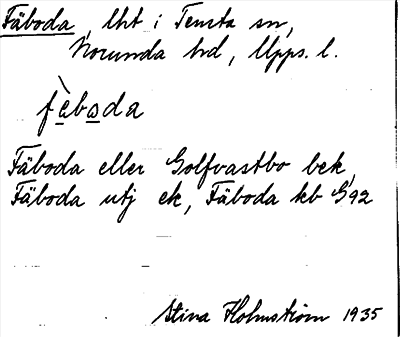 Fäboda, lht i Tensta sn,
Norunda hd, Upps. l.
fàboda
Fäboda eller Golfvastbo bek,
Fäboda utj ek, Fäboda kb G92
Stina Holmström 1935